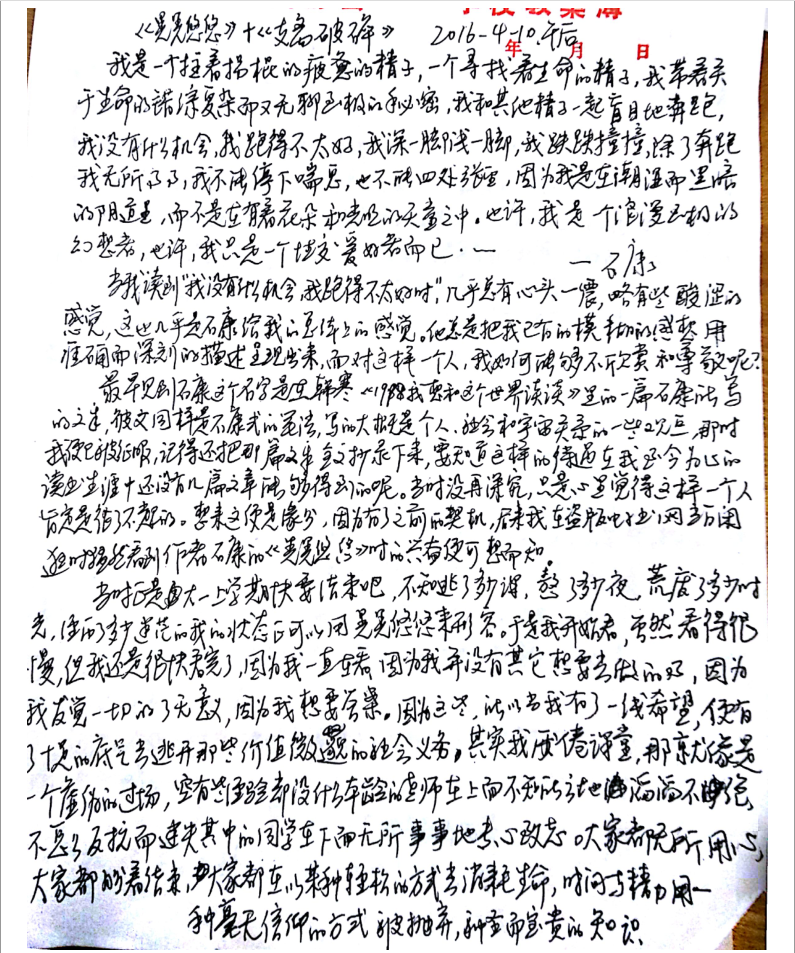 学校教案簿
《晃晃悠悠》+《支离破碎》 2016-4-10.午后
年 月 日
我是一个拄着拐棍的疲惫的精子,一个寻找着生命的精子,我带着关
于生命的错综复杂而又无聊至极的秘密,我和其他精子一起盲目地奔跑,
我没有什么机会,我跑得不太好,我深一脚浅一脚,我跌跌撞撞,除了奔跑
我无所事事,我不能停下喘息,也不能四处张望,因为我是在潮湿而黑暗
的阴道里,而不是在有着花朵和光明的天堂之中。也许,我是一个浪漫至极的
幻想者,也许,我只是一个性交爱好者而已.一
—石康
当我读到"我没有什么机会,我跑得不太好时",几乎总有心头一震,略有些酸涩的
感觉,这也几乎是石康给我的总体上的感觉。他总是把我已有的模糊的感触用
准确而深刻的描述呈现出来,而对这样一个人,我如何能够不欣赏和尊敬呢?
最早见到石康这个名字是在韩寒《1988我想和这个世界谈谈》里的一篇石康所写
的文章,彼文同样是石康式的笔法,写的大抵是个人、社会和宇宙关系的一些观点,那时
我便已被征服,记得还把那篇文章全文抄录下来,要知道这样的待遇在我至今为止的
读书生涯中还没有几篇文章能够得到的呢。当时没再深究,只是心里觉得这样一个人
肯定是很了不起的。想来这便是缘分,因为有了之前的契机,后来我在盗版电子书网站闲
逛时猛然看到作者石康的《晃晃悠悠》时的兴奋便可想而知。
当时正是大一上学期快要结束吧,不知逃了多少课,熬了多少夜,荒废了多少时
光,经历了多少迷茫的我的状态正可以用晃晃悠悠来形容。于是我开始看,虽然看得很
慢,但我还是很快看完了,因为我一直在看,因为我并没有其它想要去做的事,因为
我发觉一切的了无意义,因为我想要答案。因为这些,所以当我有了一线希望,便有
了十足的底气去逃开那些价值微邈的社会义务。其实我厌倦课堂,那就像是
一个虚伪的过场,空有些经验却没什么年龄的老师在上面不知所云地滔滔不绝,
不是么反抗而迷失其中的同学在下面无所事事地专心致志。大家都无所用心,
大家都盼着结束,大家都在以某种轻松的方式去消耗生命,时间与精力用一
种毫无信仰的方式被抛弃,和全而宝贵的知识.